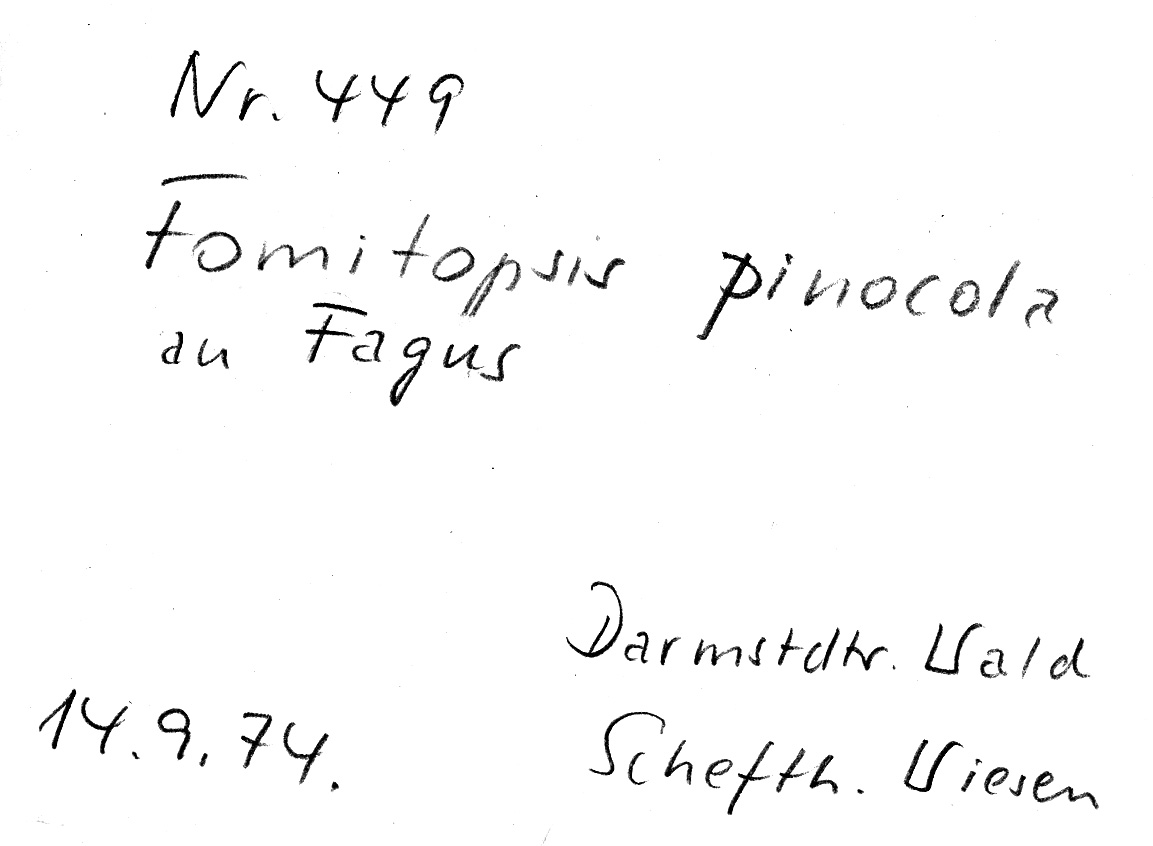 Nr. 449
Fomitopsis pinocola
an Fagus
14.9.74.
Darmstdtr. Wald
Schefth. Wiesen